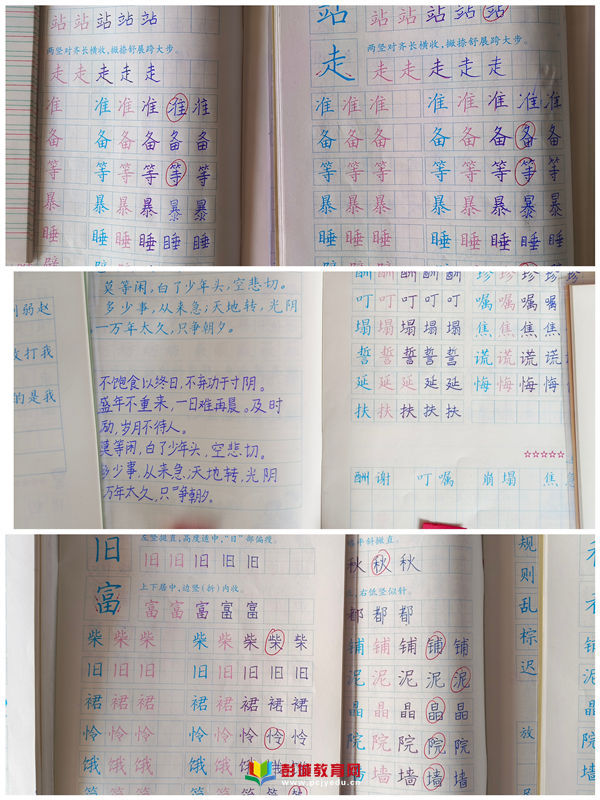 站 站 站 站
两竖对齐长横收，撇捺舒展跨大步。
走 走 走 走 走
准 准 准 准 准
备 备 备 备 备
等 等 等 等 等
暴 暴 暴 暴 暴
睡 睡 睡 睡 睡
站 站 站 站 站 站
两竖对齐长横收，撇捺舒展跨大步。
走 走 走 走 走 走
准 准 准 准 准 准 准 准
备 备 备 备 备 备 备 备
等 等 等 等 等 等 等 等
暴 暴 暴 暴 暴 暴 暴 暴
睡 睡 睡 睡 睡 睡 睡 睡
弱赵
打我
的是我
莫等闲，白了少年头，空悲切。
多少事，从来急；天地转，光阴
一万年太久，只争朝夕。
不饱食以终日，不弃功于寸阴。
盛年不重来，一日难再晨。及时
励，岁月不待人。
莫等闲，白了少年头，空悲切。
多少事，从来急；天地转，光阴
万年太久，只争朝夕。
酬 酬 酬 酬 酬 珍 珍 珍 珍
叮 叮 叮 叮 叮 嘱 嘱 嘱 嘱
塌 塌 塌 塌 塌 焦 焦 焦 焦
誓 誓 誓 誓 誓 谎 谎 谎 谎
延 延 延 延 延 悔 悔 悔 悔
扶 扶 扶 扶 扶
酬谢 叮嘱 崩塌 焦急
左竖挺直，高度适中，“日”部偏瘦。
旧 旧 旧 旧 旧 旧
上下居中，边竖（折）内收。
富 富 富 富 富 富
柴 柴 柴 柴 柴 柴 柴 柴
旧 旧 旧 旧 旧 旧 旧 旧
裙 裙 裙 裙 裙 裙 裙 裙
怜 怜 怜 怜 怜 怜 怜 怜
饿 饿 饿 饿 饿 饿 饿 饿
斜撇直。
秋 秋 秋
右低竖似针。
都 都 都
铺 铺 铺 铺 铺
泥 泥 泥 泥 泥
晶 晶 晶 晶 晶
院 院 院 院 院
墙 墙 墙 墙
规
则
乱
棕
迟
放
彭城教育网
www.pcjyedu.com